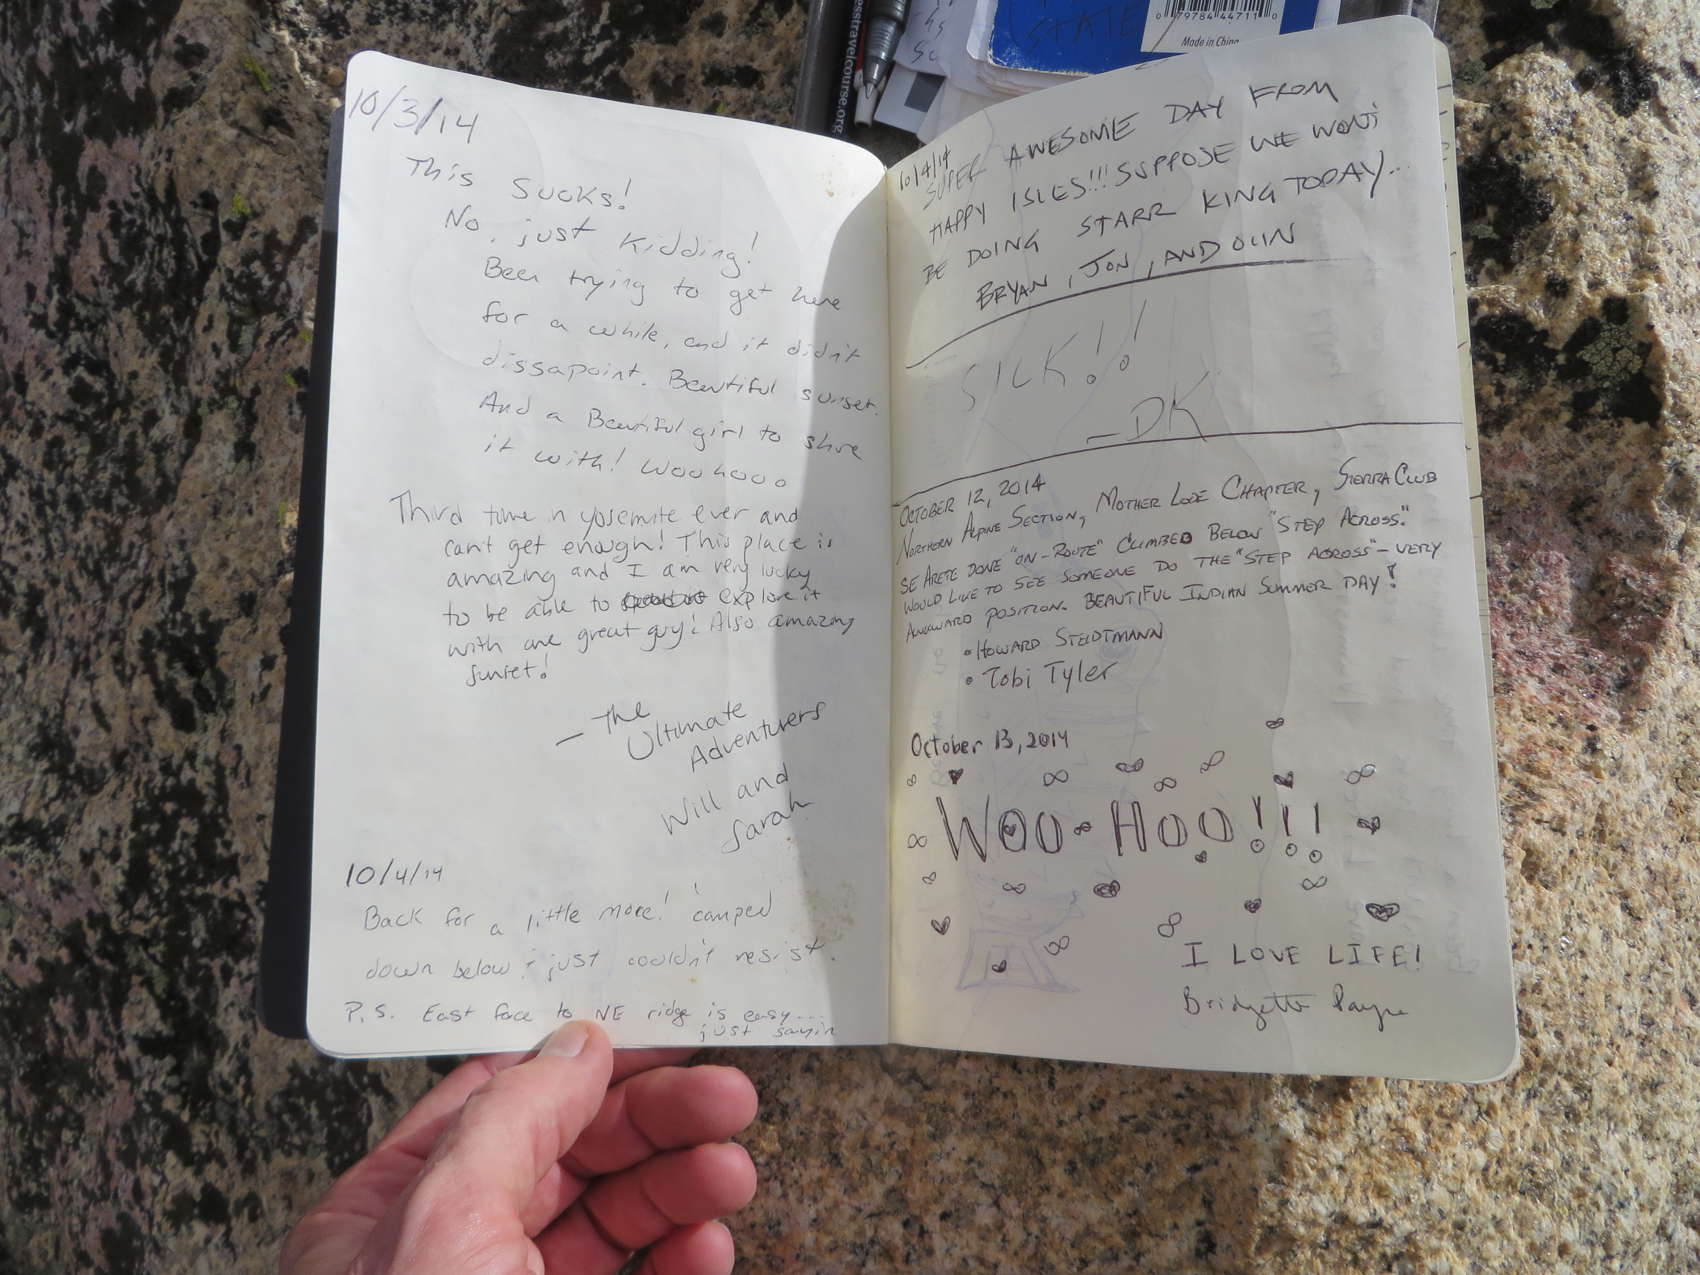 10/3/14
This Sucks!
No, just kidding!
Been trying to get here
for a while, and it didn't
dissapoint. Beautiful sunset.
And a Beautiful girl to shre
it with! Woohooo
Third time in Yosemite ever and
can't get enough! This place is
amazing and I am very lucky
to be able to explore it
with one great guy! Also amazing
sunset!
— The
Ultimate
Adventurers
Will and
Sarah
10/4/14
Back for a little more! camped
down below + just couldn't resist.
P.S. East face to NE ridge is easy....
just sayin
esstravelcourse.org
STATE
0 79784 44711 0
Made in China
10/4/14
SUPER AWESOME DAY FROM
HAPPY ISLES!!! SUPPOSE WE WON'T
BE DOING STARR KING TODAY...
BRYAN, JON, AND OLIN
SICK!!
—DK
OCTOBER 12, 2014
NORTHERN ALPINE SECTION, MOTHER LODE CHAPTER, SIERRA CLUB
SE ARETE DONE "ON-ROUTE" CLIMBED BELOW "STEP ACROSS".
WOULD LIKE TO SEE SOMEONE DO THE "STEP ACROSS" - VERY
AWKWARD POSITION. BEAUTIFUL INDIAN SUMMER DAY!
• HOWARD STEIDTMANN
• Tobi Tyler
October 13, 2014
WOO-HOO!!!
I LOVE LIFE!
Bridgette Payne